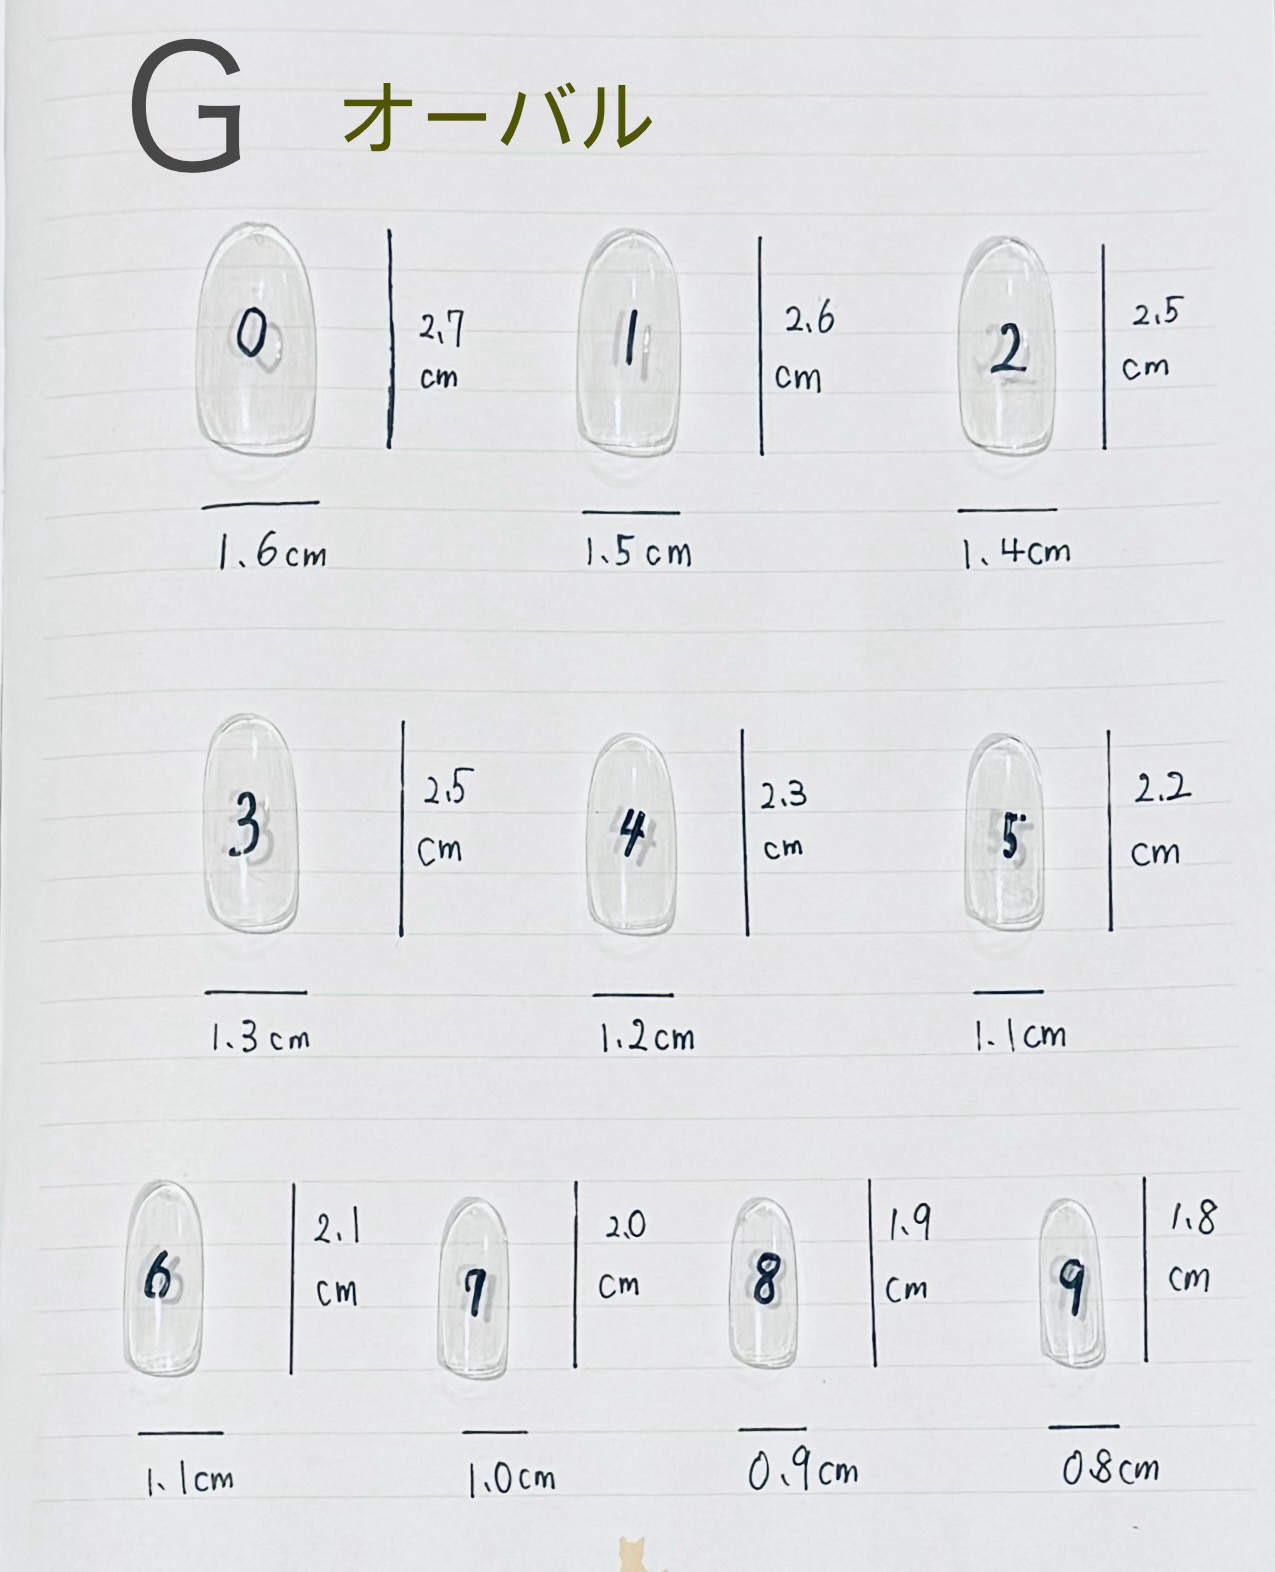 G オーバル
0 2.7 cm
1 2.6 cm
2 2.5 cm
1.6cm 1.5cm 1.4cm
3 2.5 cm
4 2.3 cm
5 2.2 cm
1.3cm 1.2cm 1.1cm
6 2.1 cm
7 2.0 cm
8 1.9 cm
9 1.8 cm
1.1cm 1.0cm 0.9cm 0.8cm